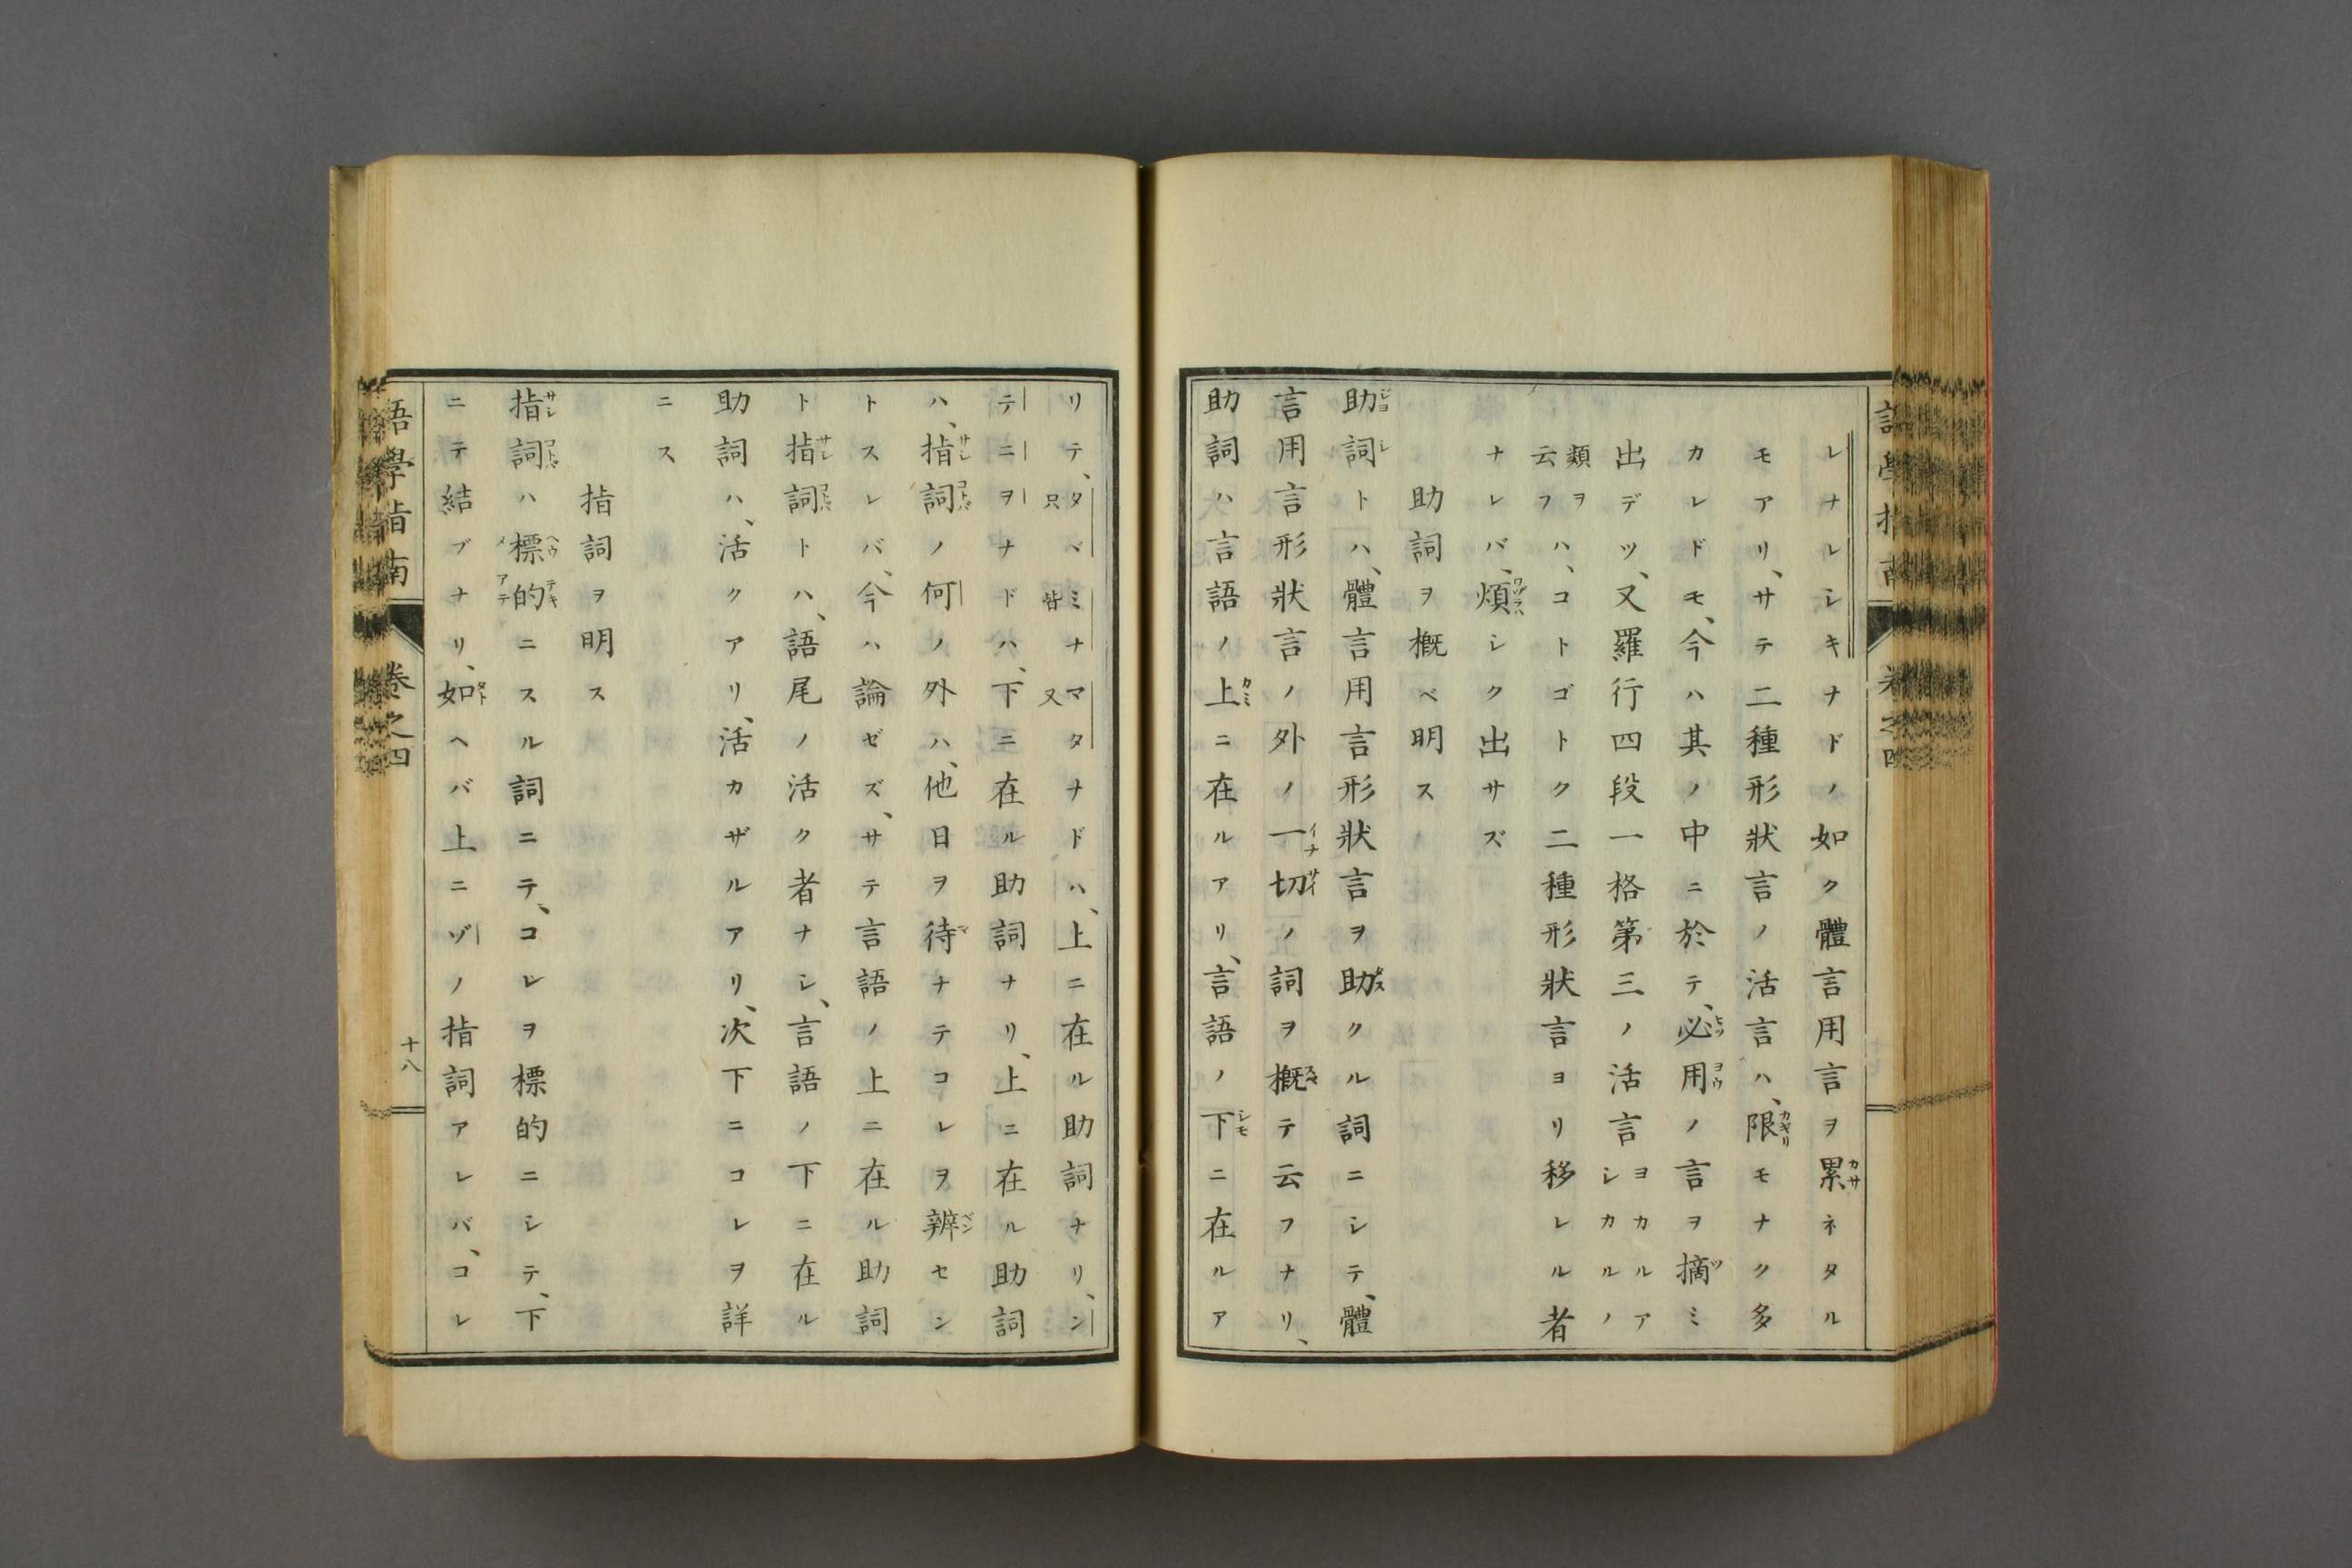 レナレシキナドノ如ク體言用言ヲ累ネタル
モアリ、サテ二種形狀言ノ活言ハ、限モナク多
カレドモ、今ハ其ノ中ニ於テ、必用ノ言ヲ摘ミ
出デツ、又羅行四段一格第三ノ活言ヨカルアシカルノ
類ヲ云フハ、コトゴトク二種形狀言ヨリ移レル者
ナレバ、煩シク出サズ
助詞ヲ概ベ明ス
助詞トハ、體言用言形狀言ヲ助クル詞ニシテ、體
言用言形狀言ノ外ノ一切ノ詞ヲ概テ云フナリ、
助詞ハ言語ノ上ニ在ルアリ、言語ノ下ニ在ルア
リテ、タベ只ミナ皆マタ又ナドハ、上ニ在ル助詞ナリ、ン
テニヲナドハ、下ニ在ル助詞ナリ、上ニ在ル助詞
ハ、指詞ノ何ノ外ハ、他日ヲ待ナテコレヲ辨セン
トスレバ、今ハ論ゼズ、サテ言語ノ上ニ在ル助詞
ト指詞トハ、語尾ノ活ク者ナシ、言語ノ下ニ在ル
助詞ハ、活クアリ、活カザルアリ、次下ニコレヲ詳
ニス
指詞ヲ明ス
指詞ハ標的ニスル詞ニテ、コレヲ標的ニシテ、下
ニテ結ブナリ、如ヘバ上ニゾノ指詞アレバ、コレ
語學指南
卷之四
十八